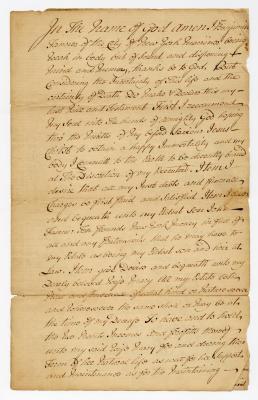 In the Name of God Amen I Benjamin
of the City of New York being
weak in body but of sound and disposing
mind and Memory thanks be to God. But
Considering the Uncertainty of this life and the
certainty of Death Do make & Declare this my
last Will and testament First I recommend
my Soul into the hands of almighty God hoping
thro the Merits of my Saviour Jesus
Christ to obtain a happy Immortality and my
body I commit to the Earth to be decently buried
at The Discretion of my Executrix Item I
desire that all my Just debts and funeral
Charges be first paid and Satisfied Item I devise
and bequeath unto my Eldest Son John
Ten Pounds New York Money in full of
all and any Pretensions that he may have to
my Estate as being my Eldest son and heir at
Law. Item I give Devise and bequeath unto my
Dearly beloved Wife Mary all my Estate both
Real and Personal of what kind or nature soever
and wheresoever the same shall or may be at
the time of my Decease To have and to hold
the Income and profits thereof
unto my said Wife Mary for and during the
Term of her Natural life as well for her Support
and Maintenance as for the Maintaining